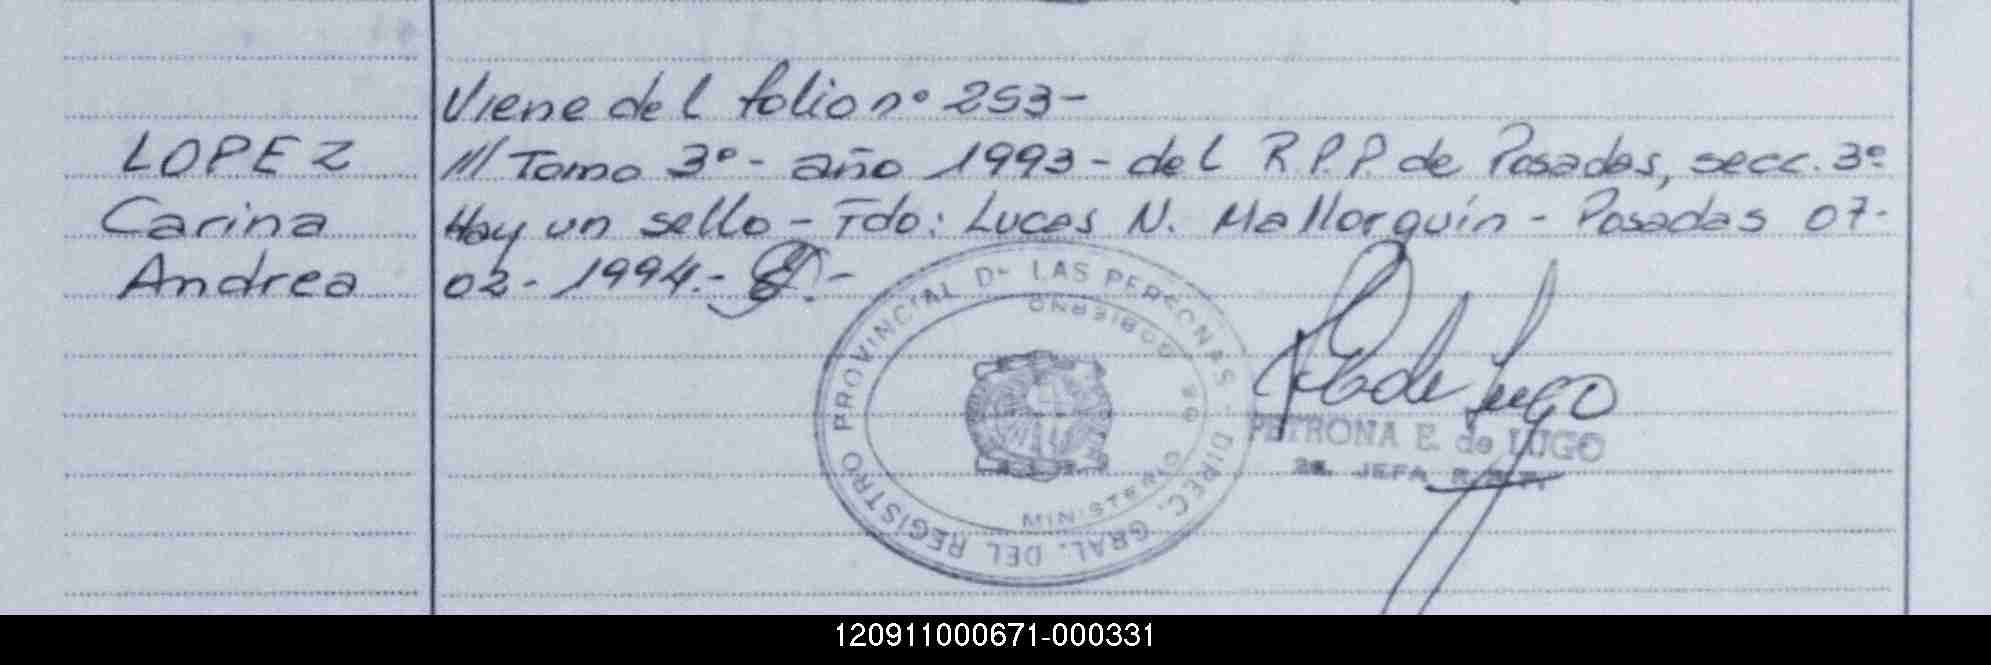 Viene del folio nº 253-
LOPEZ
/// Tomo 3º - año 1993 - del R.P.P. de Posadas, secc. 3º
Carina
Hay un sello - Fdo: Lucas N. Mallorquín - Posadas 07-
Andrea
02-1994.-
REGISTRO PROVINCIAL De LAS PERSONAS - DIREC. GRAL. DEL
MINISTERIO DE GOBIERNO
PETRONA E. de LUGO
2a. JEFA
120911000671-000331